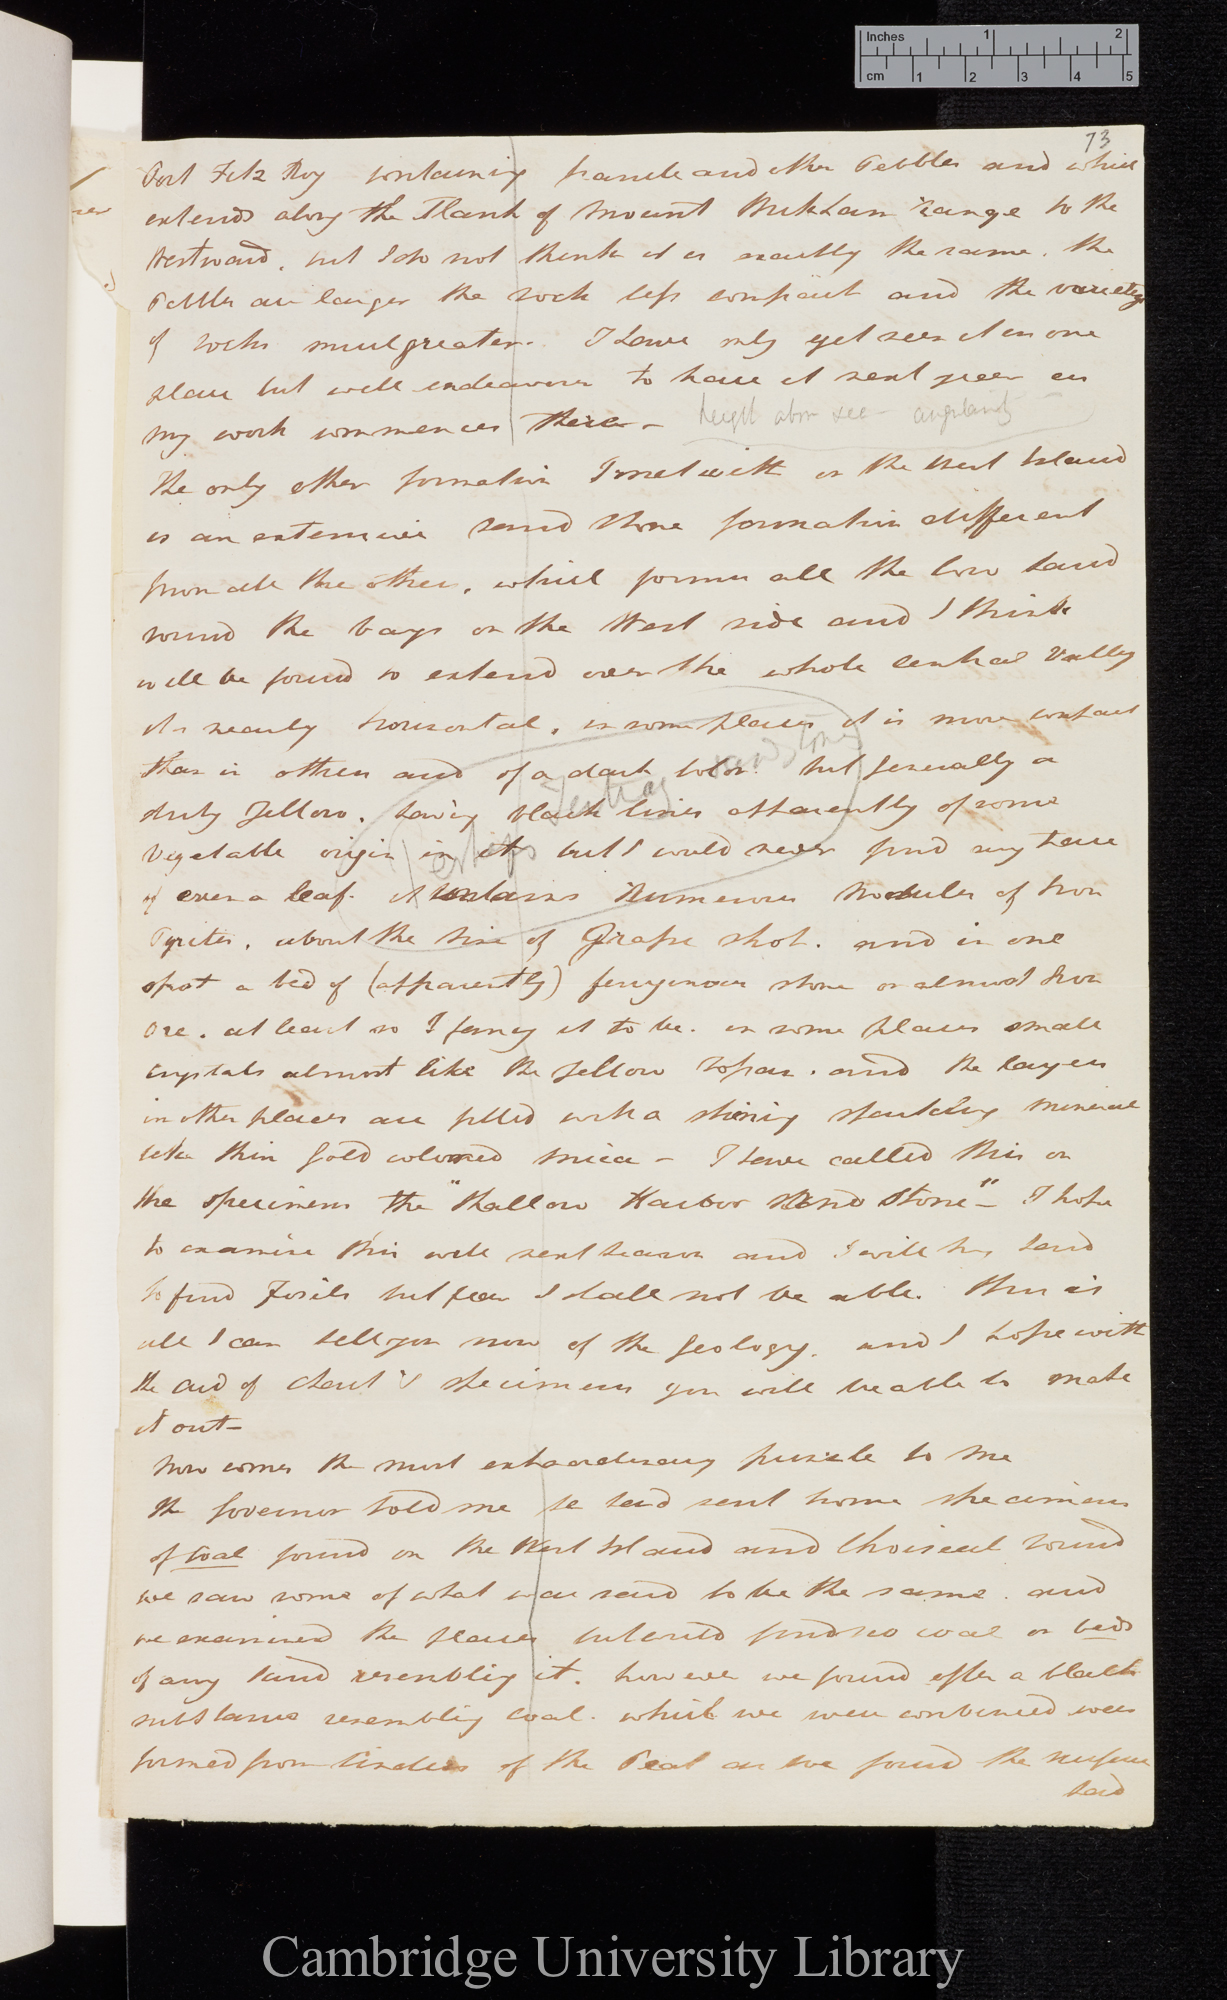 Inches 1 2
cm 1 2 3 4 5
73
Port Fitz Roy containing granite and other Pebbles and which
extends along the flank of Mount Wickham range to the
Westward, but I do not think it is exactly the same. the
Pebbles are larger the rock less compact and the variety
of rocks much greater. I have only yet seen it in one
place but will endeavour to have it next year as
my work commences there –
height above sea – angularity
The only other formation I met with on the West Island
is an extensive sand stone formation different
from all the other, which forms all the low land
round the bays on the West side and I think
will be found to extend over the whole central Valley
it is nearly horizontal, in some places it is more compact
than in others and of a dark color. but generally a
dirty Yellow. having black lines apparently of some
Vegetable origin in it but I could never find any trace
of even a leaf. it contains numerous nodules of Iron
Perhaps Tertiary sandstone
Pyrites, about the size of Grape shot. and in one
spot a bed of (apparently) ferruginous stone or almost Iron
ore. at least so I fancy it to be. in some places small
crystals almost like the yellow Topaz. and the layers
in other places are filled with a shining sparkling mineral
like thin gold coloured mica – I have called this on
the specimens the "Shallow Harbor Sand Stone" – I hope
to examine this well next season and I will try hard
to find Fossils but fear I shall not be able. This is
all I can tell you now of the Geology. and I hope with
the aid of chart & specimens you will be able to make
it out –
Now comes the most extraordinary puzzle to me
the Governor told me he had sent home specimens
of coal found on the West Island and Choiseul Sound
we saw some of what was said to be the same. and
we examined the places but could find no coal or beds
of any kind resembling it. however we found often a black
substance resembling coal. which we were convinced was
formed from cinders of the Peat as we found the surface
had
Cambridge University Library